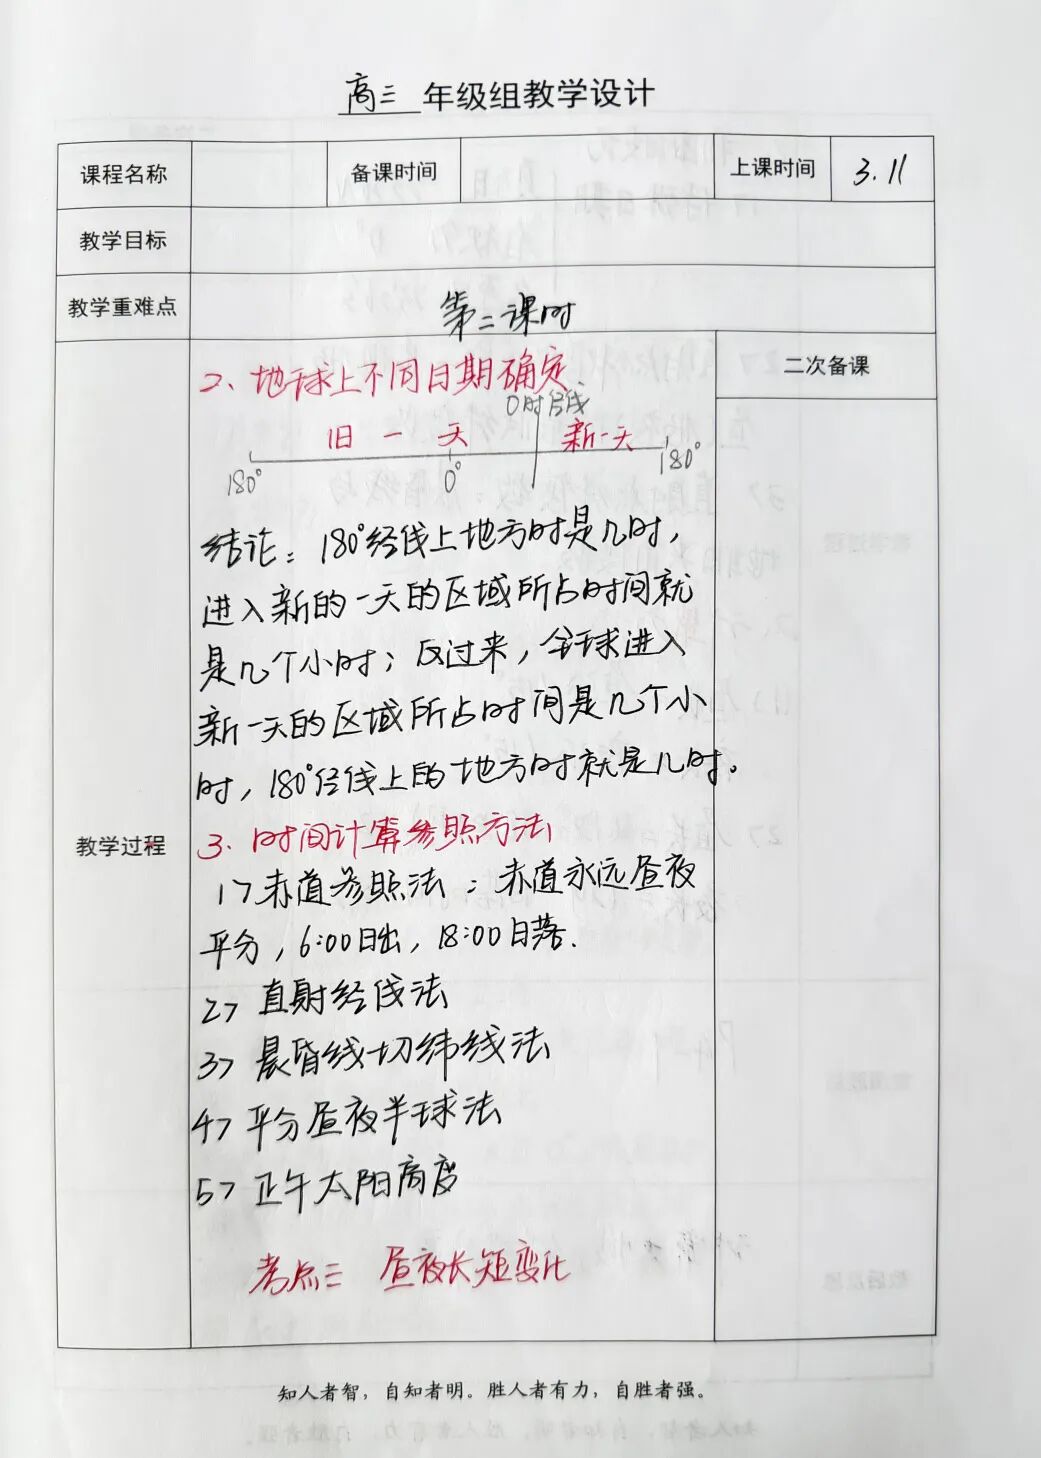 高三 年级组教学设计
课程名称 备课时间 上课时间 3.11
教学目标
教学重难点
第二课时
教学过程
二次备课
2、地球上不同日期确定
0时经线
旧一天 新一天
180° 0° 180°
结论：180°经线上地方时是几时，
进入新的一天的区域所占时间就
是几个小时；反过来，全球进入
新一天的区域所占时间是几个小
时，180°经线上的地方时就是几时。
3、时间计算参照方法
1>赤道参照法：赤道永远昼夜
平分，6:00日出，18:00日落.
2> 直射经线法
3> 晨昏线切纬线法
4> 平分昼夜半球法
5> 正午太阳高度
考点三 昼夜长短变化
知人者智，自知者明。胜人者有力，自胜者强。